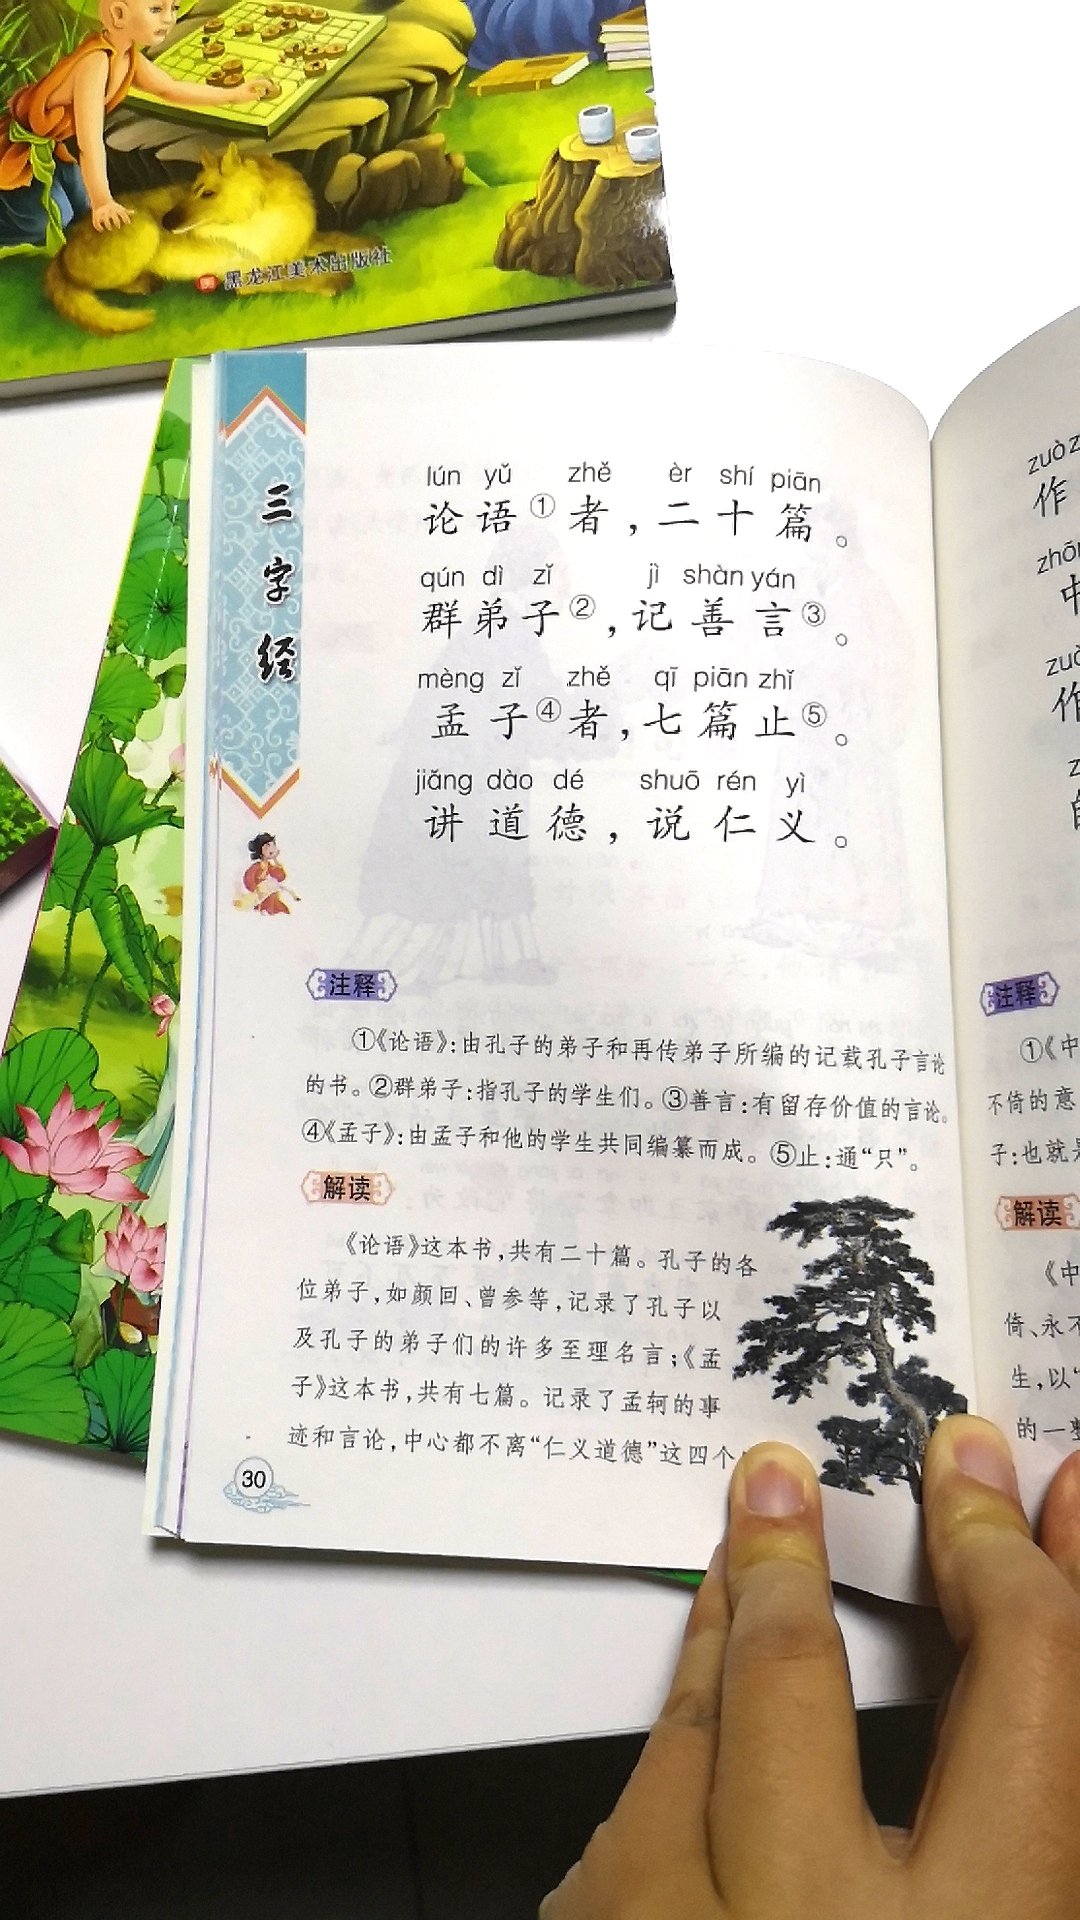 黑龙江美术出版社
三字经
lún yǔ zhě èr shí piān
论语①者，二十篇。
qún dì zǐ jì shàn yán
群弟子②，记善言③。
mèng zǐ zhě qī piān zhǐ
孟子④者，七篇止⑤。
jiǎng dào dé shuō rén yì
讲道德，说仁义。
注释
①《论语》：由孔子的弟子和再传弟子所编的记载孔子言论
的书。②群弟子：指孔子的学生们。③善言：有留存价值的言论。
④《孟子》：由孟子和他的学生共同编纂而成。⑤止：通“只”。
解读
《论语》这本书，共有二十篇。孔子的各
位弟子，如颜回、曾参等，记录了孔子以
及孔子的弟子们的许多至理名言；《孟
子》这本书，共有七篇。记录了孟轲的事
迹和言论，中心都不离“仁义道德”这四个
30
zuò
作
中
作
注释
①《中
不倚的意
子：也就是
解读
《中
倚、永不
生，以“
的一整